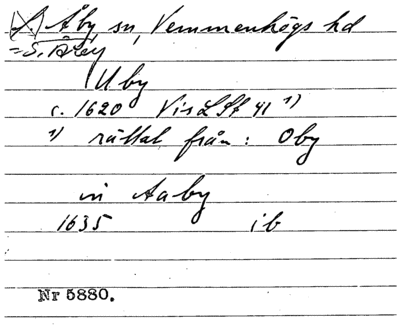 Åby sn, Vemmenhögs hd
= S. Åby
Uby
c. 1620 Vis LSt 41 1)
1) rättat från: Oby
in Aaby
1635 ib
Nr 5880.